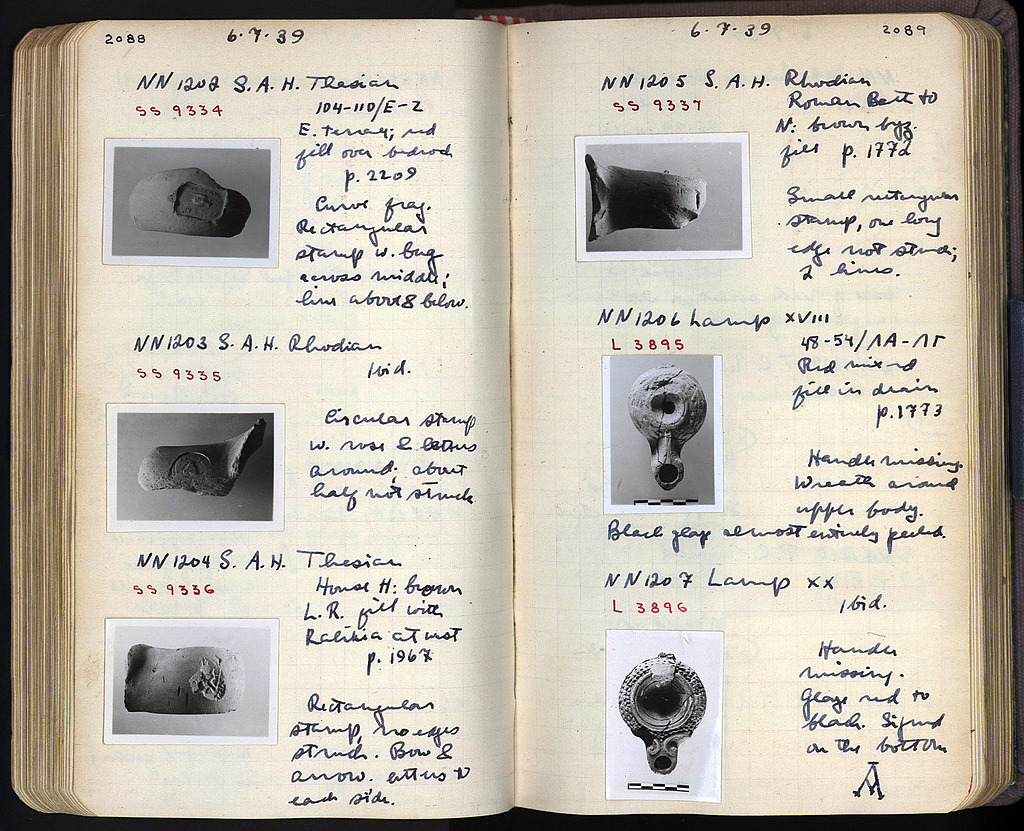 2088
6·7·39
NN1202 S.A.H. Thesian
SS 9334
104-110/E-2
E. terrace; red
fill over bedrock
p. 2209
Curve frag.
Rectangular
stamp w. bug
across middle;
line above & below.
NN1203 S.A.H. Rhodian
SS 9335
Ibid.
Circular stamp
w. rose & letters
around; about
half not struck
NN1204 S.A.H. Thesian
SS 9336
House H: brown
L.R. fill with
at west
p. 1967
Rectangular
stamp, no edges
struck. Bow &
arrow. letters to
each side.
6·7·39
2089
NN1205 S.A.H. Rhodian
SS 9337
Roman Bath to
N: brown byz.
fill p. 1772
Small rectangular
stamp, one long
edge not struck;
2 lines.
NN1206 Lamp XVIII
L 3895
48-54/ΛA-ΛΓ
Red mixed
fill in drain
p. 1773
Handle missing.
Wreath around
upper body.
Black glaze almost entirely peeled.
NN1207 Lamp XX
L 3896
Ibid.
Handle
missing.
Glaze red to
black. Signed
on the bottom